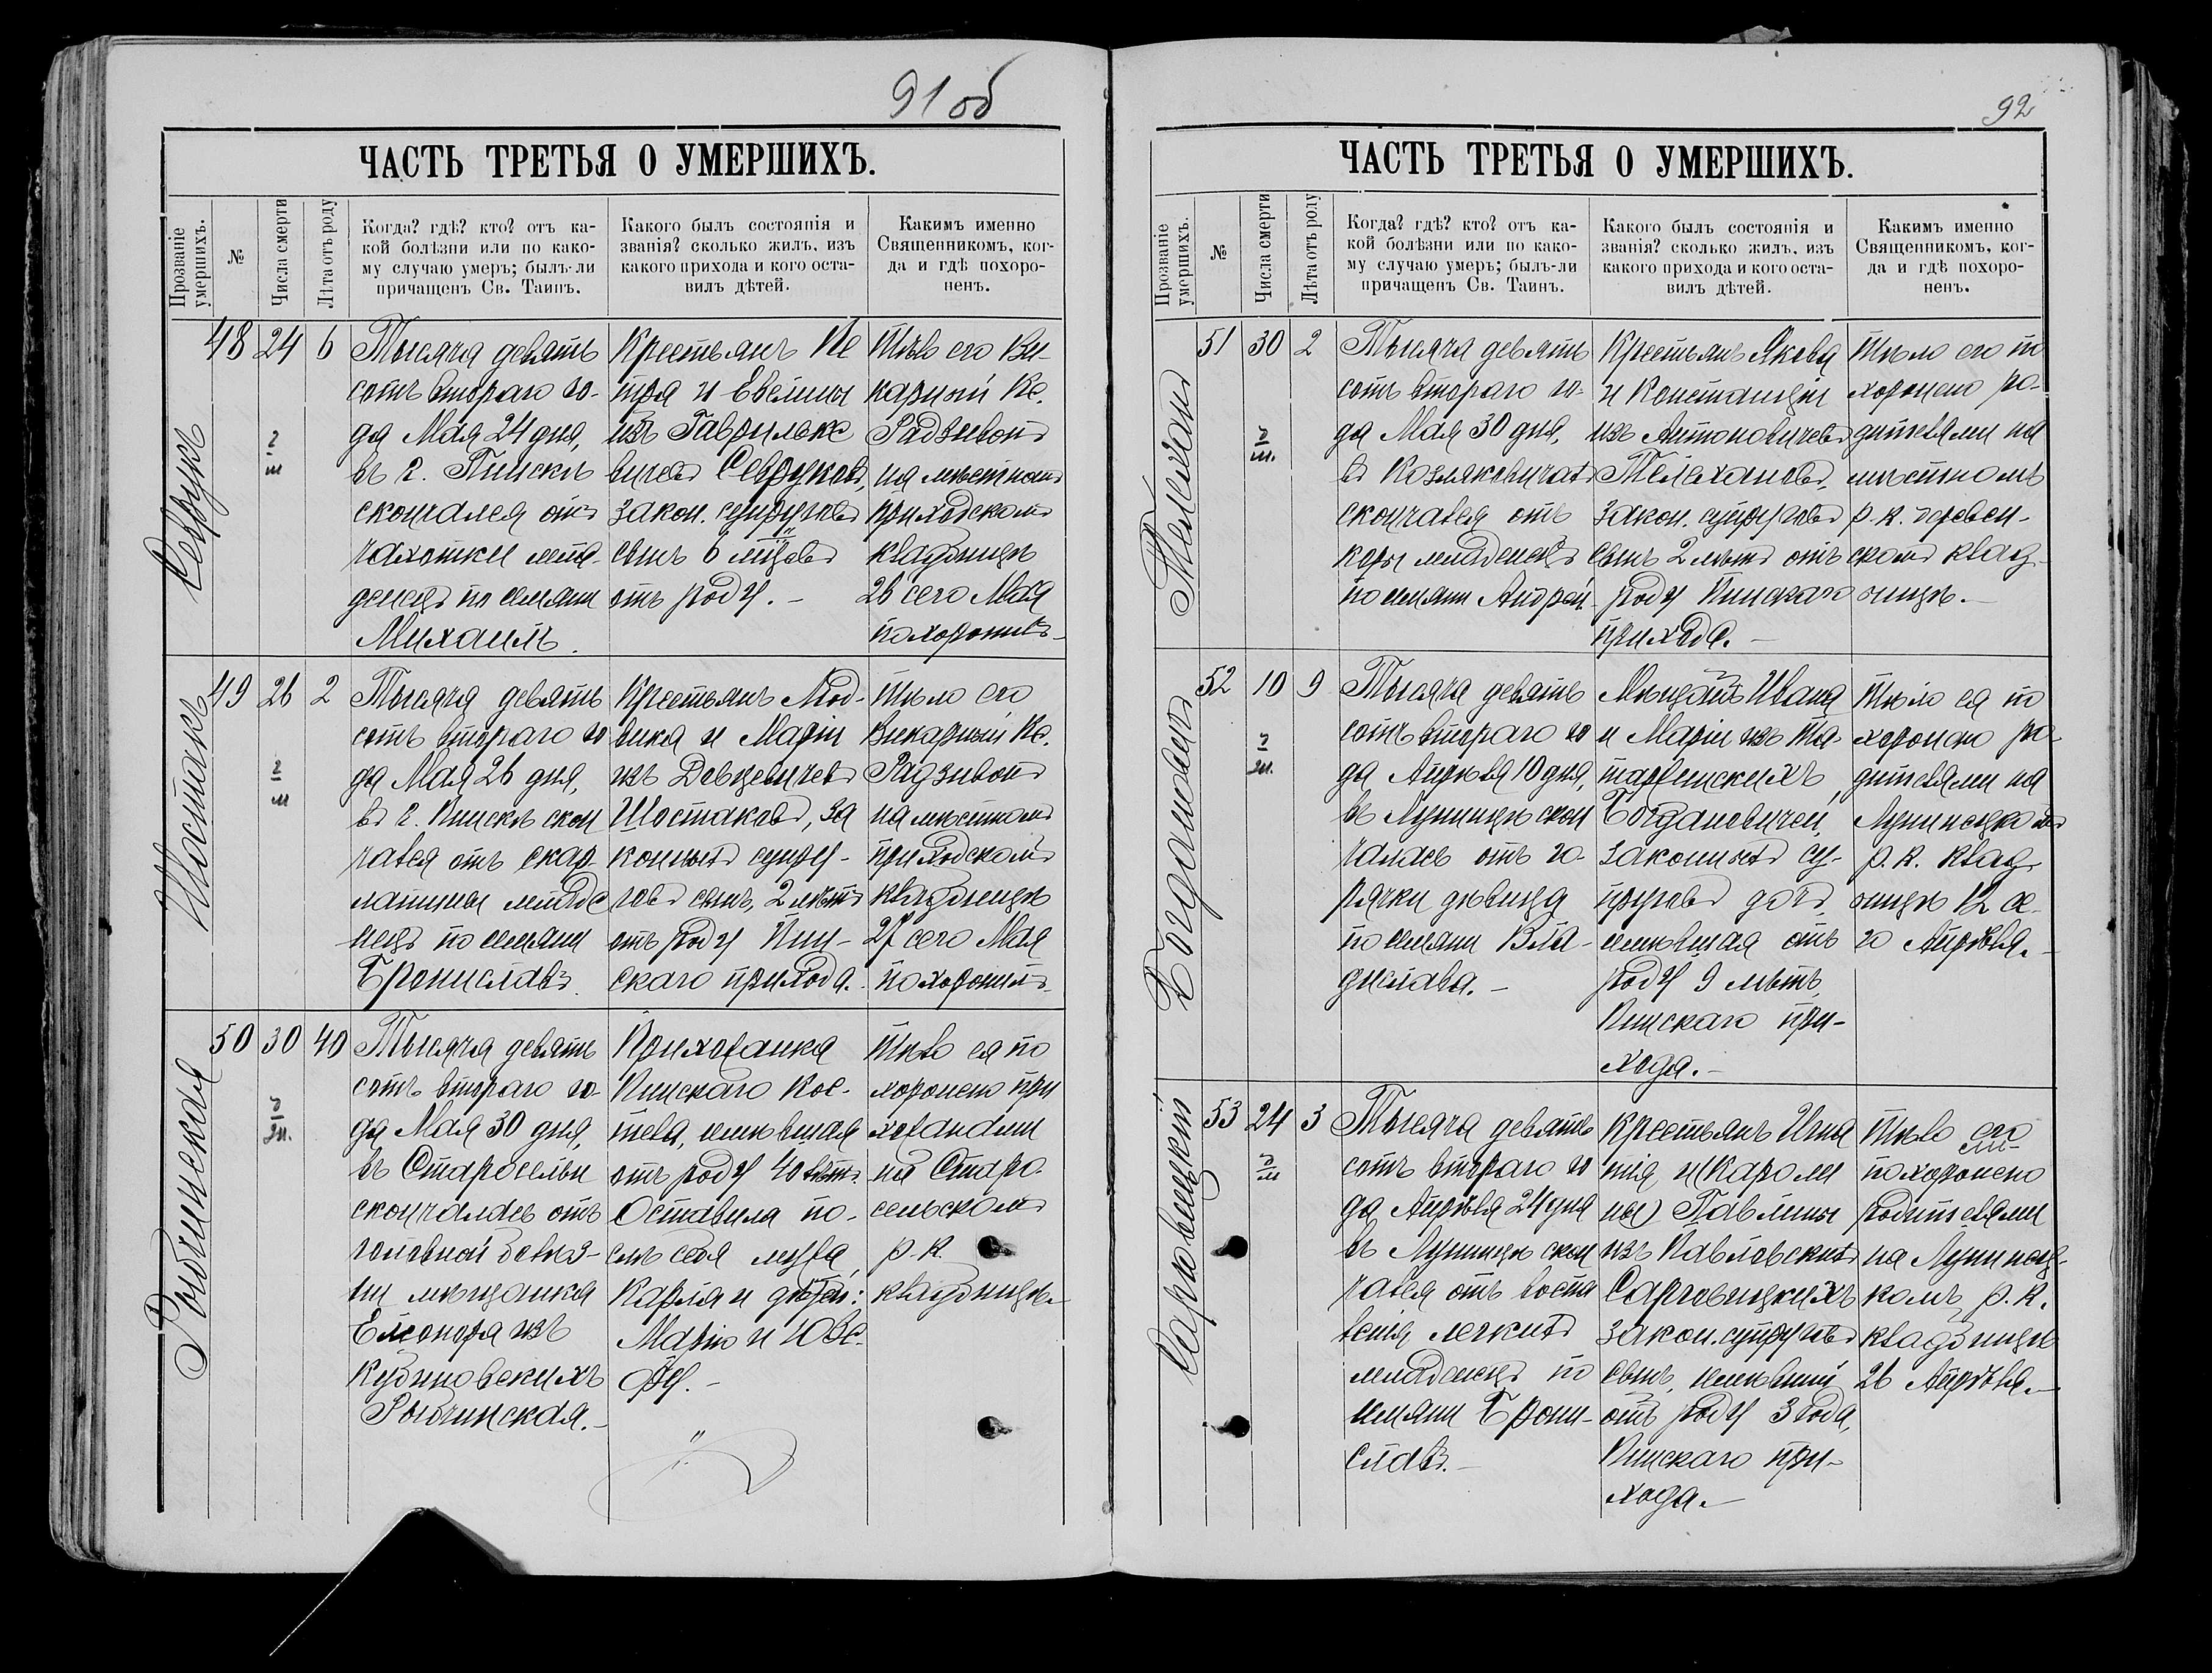 91 об
ЧАСТЬ ТРЕТЬЯ О УМЕРШИХЪ.
Прозваніе умершихъ.
№
Числа смерти
Лѣта отъ роду
Когда? гдѣ? кто? отъ ка-
кой болѣзни или по како-
му случаю умеръ; былъ-ли
причащенъ Св. Таинъ.
Какого былъ состоянія и
званія? сколько жилъ, изъ
какого прихода и кого оста-
вилъ дѣтей.
Каким​ъ именно
Священникомъ, ког-
да и гдѣ похоро-
ненъ.
Севрукъ
48
24
6
Тысяча девять
сотъ втораго го-
да Мая 24 дня,
въ г. Пинскѣ
скончался отъ
чахотки мла-
денецъ по имени
Михаилъ.
Крестьянъ Пе
тра и Евелины
изъ Гаврильке
вичевъ Севруковъ,
закон. супруговъ
сынъ 6 мѣсцевъ
отъ роду. –
Тѣло его Ви-
карный Кс.
Радзивонъ
на мѣстномъ
приходскомъ
кладбищѣ
26 сего Мая
похоронилъ
Шостакъ
49
26
2
Тысяча девять
сотъ втораго го
да Мая 26 дня,
въ г. Пинскѣ скон
чался отъ скар-
латины младе
нецъ по имени
Брониславъ.
Крестьянъ Люд-
вика и Маріи
изъ Девцевичевъ
Шостаковъ, за
конныхъ супру-
говъ сынъ, 2 лѣтъ
отъ роду Пин-
скаго прихода.
Тѣло его
Викарный Кс.
Радзивонъ
на мѣстномъ
приходскомъ
кладбищѣ
27 сего Мая
похоронилъ
Рыбчинская
50
30
40
Тысяча девять
сотъ втораго го-
да Мая 30 дня,
въ Старосельи
скончалась отъ
головной болѣз-
ни мѣщанка
Елеонора изъ
Кубиновскихъ
Рыбчинская.–
Прихожанка
Пинскаго Кос-
тела, имѣвшая
отъ роду 40 лѣтъ.
Оставила по-
слѣ себя мужа
Карла и дѣтей:
Марію и Юзе-
фу. –
Тѣло ея по
хоронено при
хожанами
на Старо-
сельскомъ
р. к.
кладбищѣ.
92
ЧАСТЬ ТРЕТЬЯ О УМЕРШИХЪ.
Прозваніе умершихъ.
№
Числа смерти
Лѣта отъ роду
Когда? гдѣ? кто? отъ ка-
кой болѣзни или по како-
му случаю умеръ; былъ-ли
причащенъ Св. Таинъ.
Какого былъ состоянія и
званія? сколько жилъ, изъ
какого прихода и кого оста-
вилъ дѣтей.
Какимъ именно
Священникомъ, ког-
да и гдѣ похоро-
ненъ.
51
30
2
Тысяча девять
сотъ втораго го-
да Мая 30 дня,
въ Козляковичахъ
скончался отъ
кори младенецъ
по имени Андрей.
Крестьянъ Якова
и Констанціи
изъ Антоновичевъ
Телехановъ,
закон. супруговъ
сынъ 2 лѣтъ отъ
роду Пинскаго
прихода. –
Тѣло его по
хоронено ро-
дителями на
мѣстномъ
р. к. деревен-
скомъ клад-
бищѣ. –
Богдановичъ
52
10
9
Тысяча девять
сотъ втораго го
да Апрѣля 10 дня,
въ Лунинцѣ скон
чалась отъ го-
рячки дѣвица
по имени Вла-
дислава. –
Мѣщанъ Ивана
и Маріи изъ Та-
тарсинскихъ
Богдановичей,
законныхъ су-
пруговъ дочь,
имѣвшая отъ
роду 9 лѣтъ,
Пинскаго при-
хода. –
Тѣло ея по
хоронено ро-
дителями на
Лунинецкомъ
р. к. клад-
бищѣ 12 се-
го Апрѣля. –
Сарговецкій
53
24
3
Тысяча девять
сотъ втораго го
да Апрѣля 24 дня
въ Лунинцѣ скон
чался отъ воспа
ленія легкихъ
младенецъ по
имени Брони-
славъ. –
Крестьянъ Игна
тія и (Кароли
ны) Павлины
изъ Павловскихъ
Сарговецкихъ
закон. супруговъ
сынъ, имѣвшій
отъ роду 3 года,
Пинскаго при-
хода. –
Тѣло его
похоронено
родителями
на Лунинец-
комъ р. к.
кладбищѣ
26 Апрѣля. –